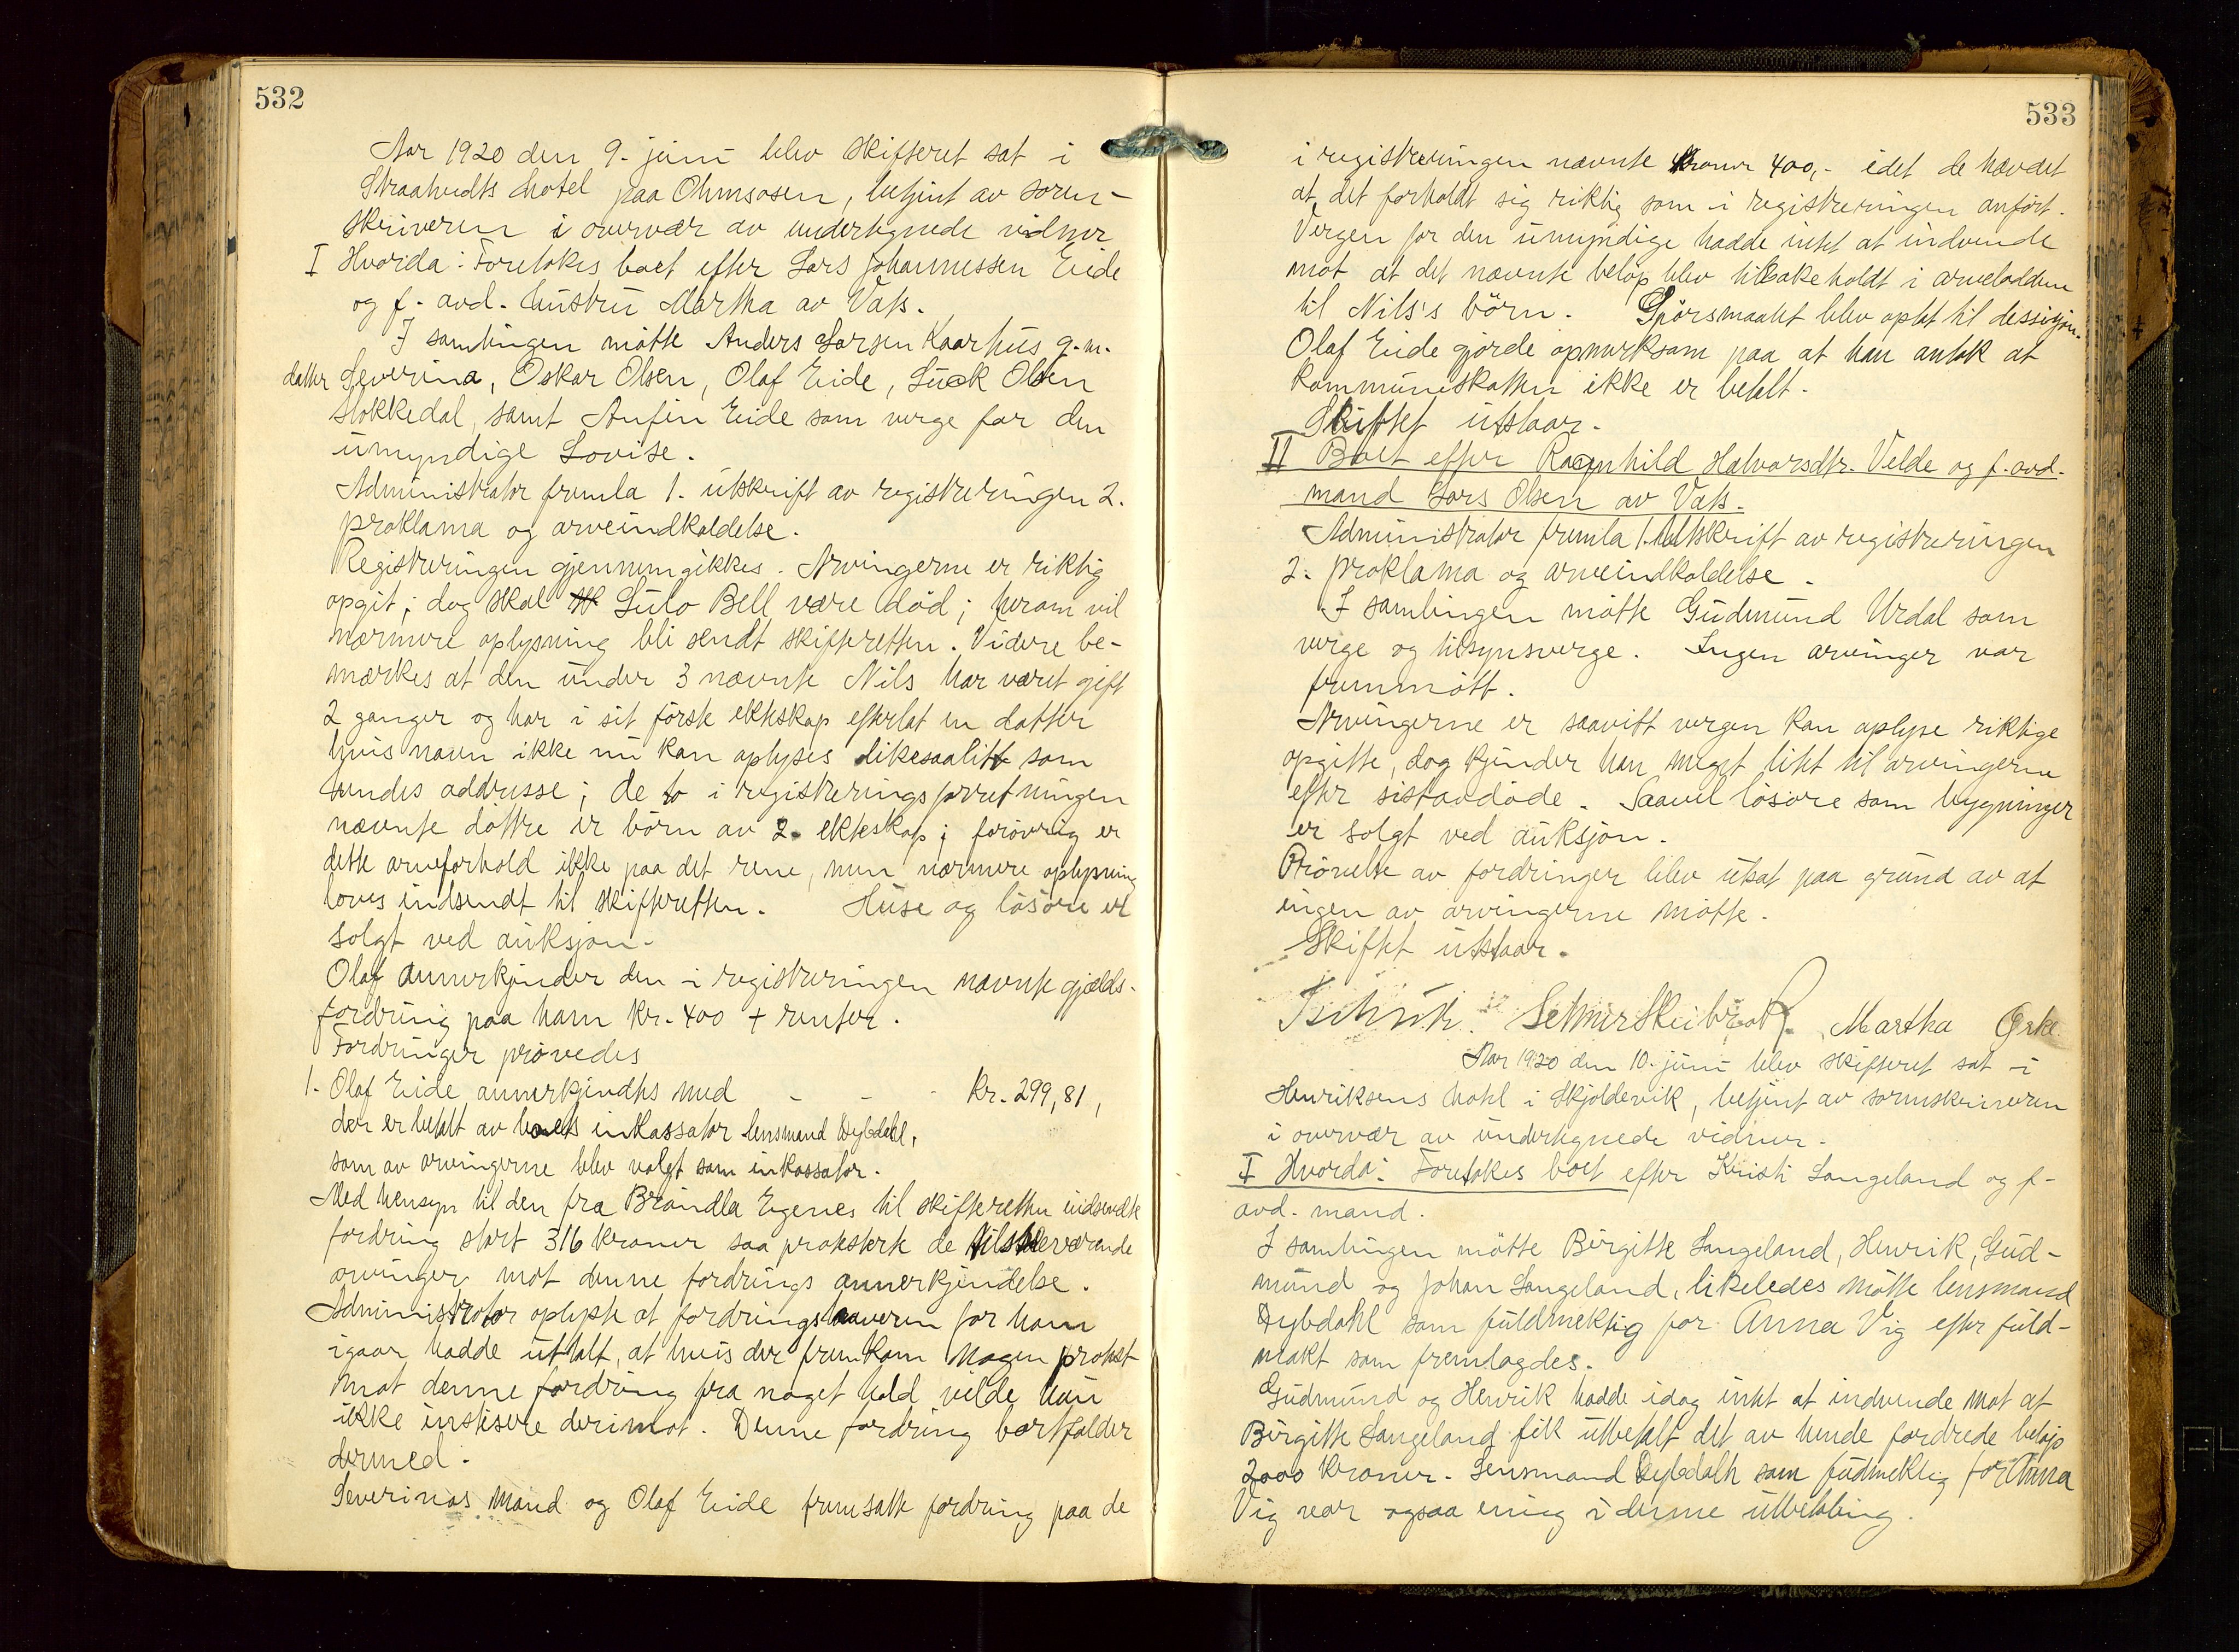 532
Aar 1920 den 9. juni blev skifteret sat i
Straatveits hotel paa Ølensosen, betjent av soren-
skriveren i overvær av undertegnede vidner
I Hvorda: Foretokes boet efter Lars Johannessen Eide
og f. avd. hustru Martha av Vats.
I samlingen møtte Anders Larsen Kaarhus g. m.
datter Severina, Oskar Olsen, Olaf Eide, Olsen
Stokkedal, samt Anfin Eide som verge for den
umyndige Lovise.
Administrator fremla 1. utskrift av registreringen 2.
proklama og arveindkaldelse.
Registreringen gjennemgikkes. Arvingerne er riktig
opgit; dog skal Bell være død; herom vil
nærmere oplysning bli sendt skifteretten. Videre be-
mærkes at den under 3 nævnte Nils har været gift
2 ganger og har i sit første ekteskap efterlat en datter
hvis navn ikke nu kan oplyses likesaalitt som
hendes addresse; de to i registreringsforretningen
nævnte døttre er börn av 2. ekteskap; forøvrig er
dette arveforhold ikke paa det rene, men nærmere oplysning
loves indsendt til skifteretten. Huse og løsøre er
solgt ved auksjon.
Olaf annerkjender den i registreringen nævnte gjælds-
fordring paa ham kr. 400 + renter.
Fordringer prøvedes
1. Olaf Eide annerkjendtes med - - - kr. 299,81,
der er betalt av boets inkassator lensmand Dybdahl,
som av arvingerne blev valgt som inkassator.
Med hensyn til den fra Egenes til skifteretten indsendte
fordring stort 316 kroner saa protesterte de tilstedeværende
arvinger mot denne fordrings annerkjendelse.
Administrator oplyste at fordringshaveren for ham
igaar hadde uttalt, at hvis der fremkom nogen protest
mot denne fordring fra noget hold vilde han
ikke insistere derimot. Denne fordring bortfalder
dermed.
Severinas mand og Olaf Eide fremsatte fordring paa de
533
i registreringen nævnte kroner 400,- idet de hævdet
at det forholdt sig riktig som i registreringen anført.
Vergen for den umyndige hadde intet at indvende
mot at det nævnte beløp blev tilbakeholdt i arvelodden
til Nils's börn. Spörsmaalet blev optat til dessisjon.
Olaf Eide gjorde opmerksom paa at han antok at
kommuneskatten ikke er betalt.
Skiftet utstaar.
II Boet efter Ragnhild Halvorsdtr. Velde og f. avd.
mand Lars Olsen av Vats.
Administrator fremla 1. Utskrift av registreringen
2. proklama og arveindkaldelse.
I samlingen møtte Gudmund Urdal som
verge og tilsynsverge. Ingen arvinger var
fremmøtt.
Arvingerne er saavitt vergen kan oplyse riktige
opgitte, dog kjender han meget litet til arvingerne
efter sistavdøde. Saavel løsøre som bygninger
er solgt ved auksjon.
Prøvelse av fordringer blev utsat paa grund av at
ingen av arvingerne møtte.
Skiftet utstaar.
Martha Ørke
Aar 1920 den 10. juni blev skifteret sat i
Henriksens hotel i Skjoldevik, betjent av sorenskriveren
i overvær av undertegnede vidner.
I Hvorda: Foretokes boet efter Kristi Langeland og f-
avd. mand.
I samlingen møtte Birgitte Langeland, Henrik, Gud-
mund og Johan Langeland, likeledes møtte lensmand
Dybdahl som fuldmektig for Anna Vig efter fuld-
makt som fremlagdes.
Gudmund og Henrik hadde idag intet at indvende mot at
Birgitte Langeland fik utbetalt det av hende fordrede beløp
2000 kroner. Lensmand Dybdahl som fudmektig for Anna
Vig var ogsaa enig i denne utbetaling.